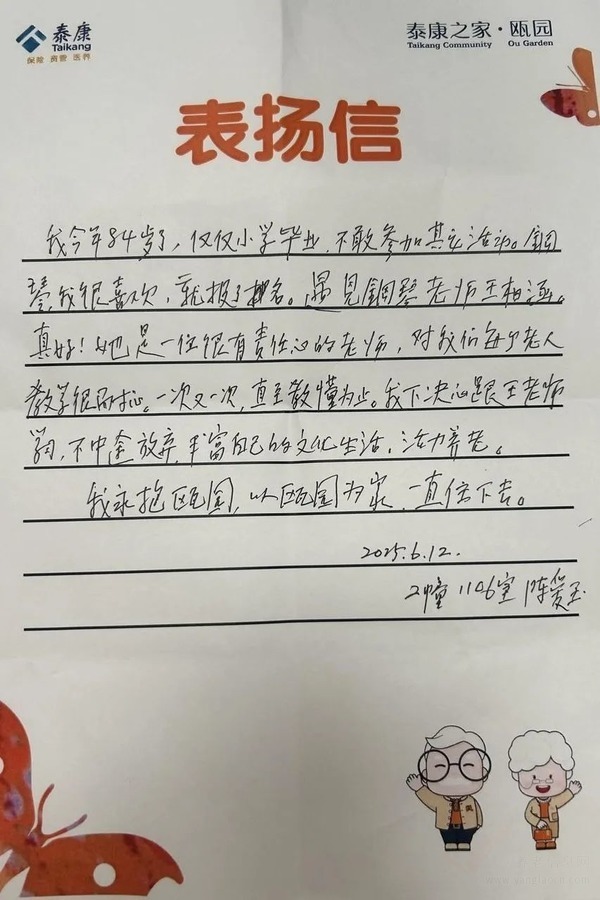 泰康
Taikang
保险 资管 医养
泰康之家·瓯园
Taikang Community Ou Garden
表扬信
我今年84岁了,仅仅小学毕业,不敢参加其它活动。钢
琴我很喜欢,就报了名。遇见钢琴老师王相涵。
真好!她是一位很有责任心的老师,对我们每个老人
教学很耐心。一次又一次,直至教懂为止。我下决心跟王老师
学习,不中途放弃,丰富自己的文化生活,活力养老。
我承抱瓯园,以瓯园为家,一直住下去。
2025.6.12.
2幢1106室 陈爱玉